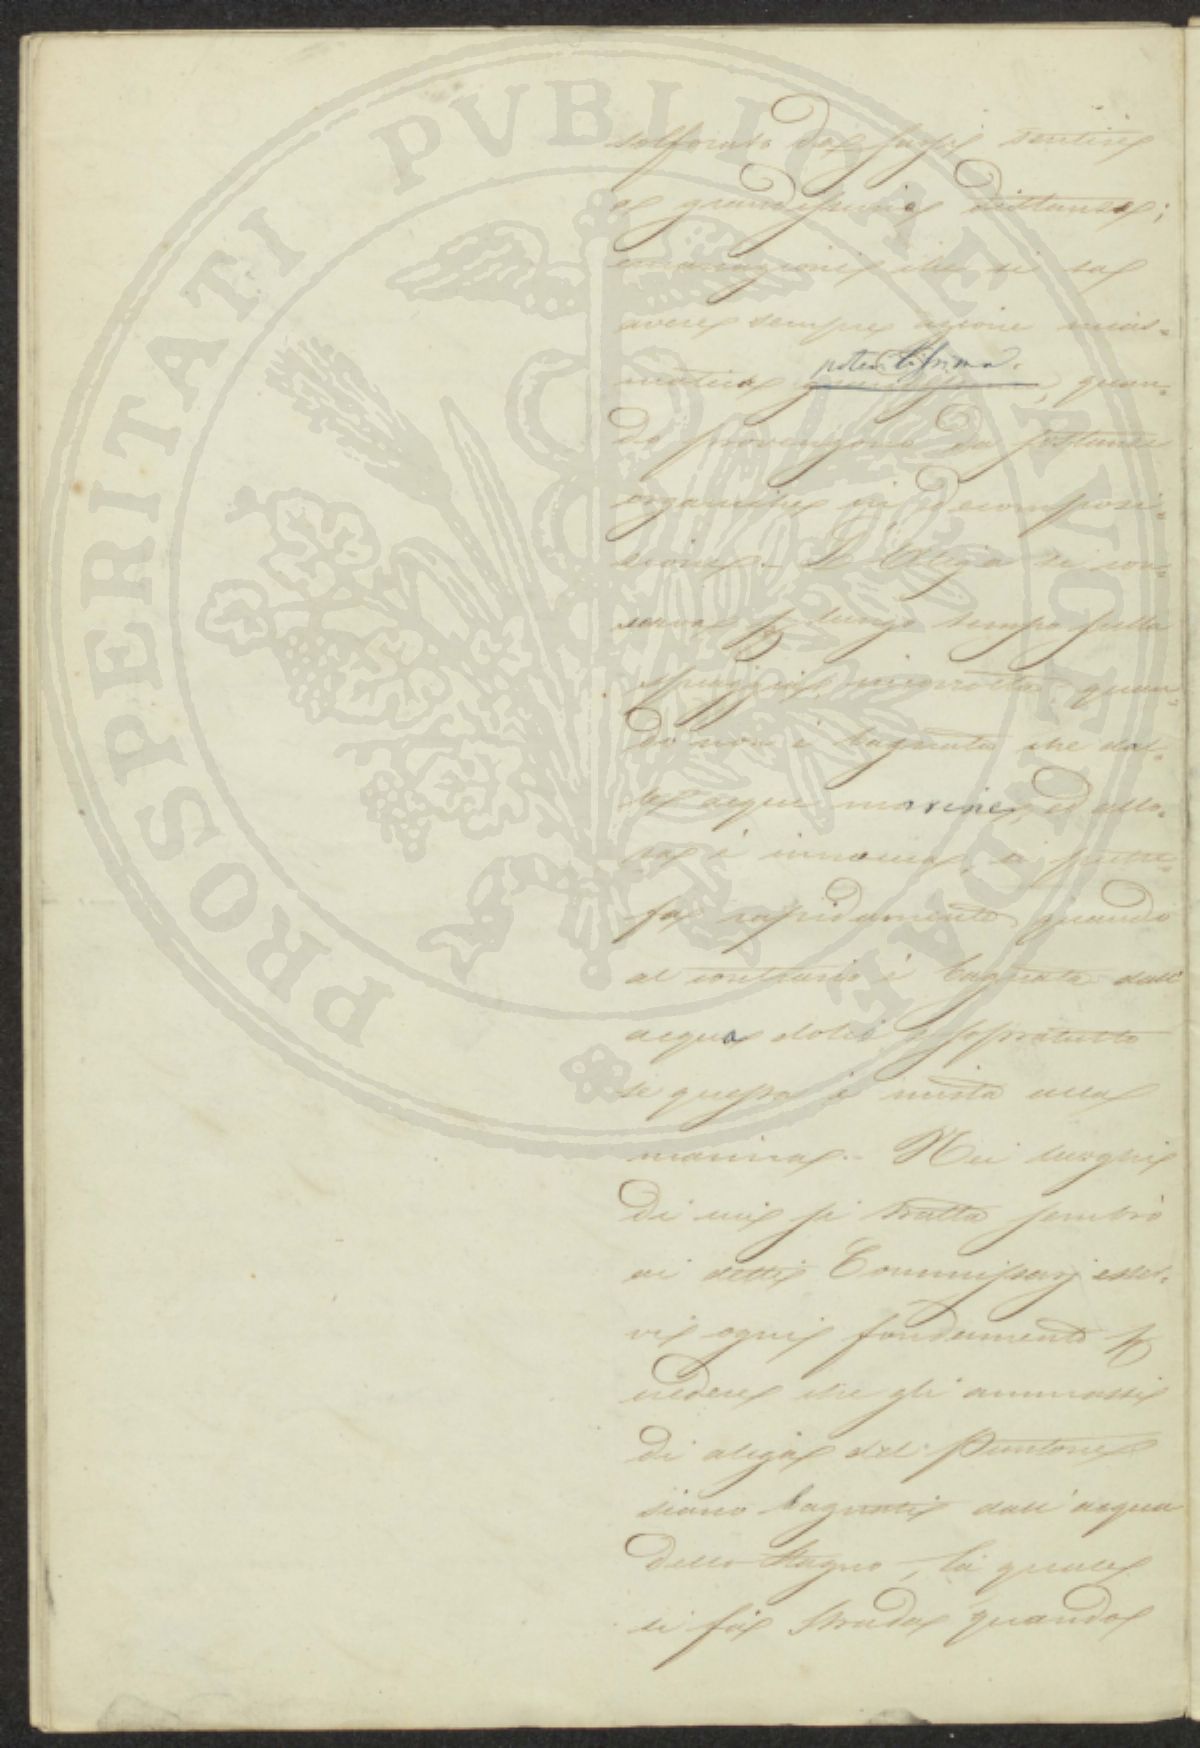 PROSPERITATI PVBLICAE AVGENDAE
solforato da farsi sentire
a grandissima distanza;
emanazioni che si sa
avere sempre azione mias-
matica potentissima, quan-
do provengono da sostanze
organiche in decomposi-
zione. L'Aliga si con-
serva p lungo tempo sulla
spiaggia incorrotta quan-
do non è bagnata che dal-
le acque marine, ed allo-
ra è innocua, si putre-
fa rapidamente quando
al contrario è bagnata dall'
acqua dolce e soprattutto
se questa è mista alla
marina. Nei luoghi
di cui si tratta sembrò
ai detti Commissarj esser-
vi ogni fondamento p
credere che gli ammassi
di aliga del Puntone
siano bagnati dall'acqua
dello Stagno, la quale
si fa strada quando